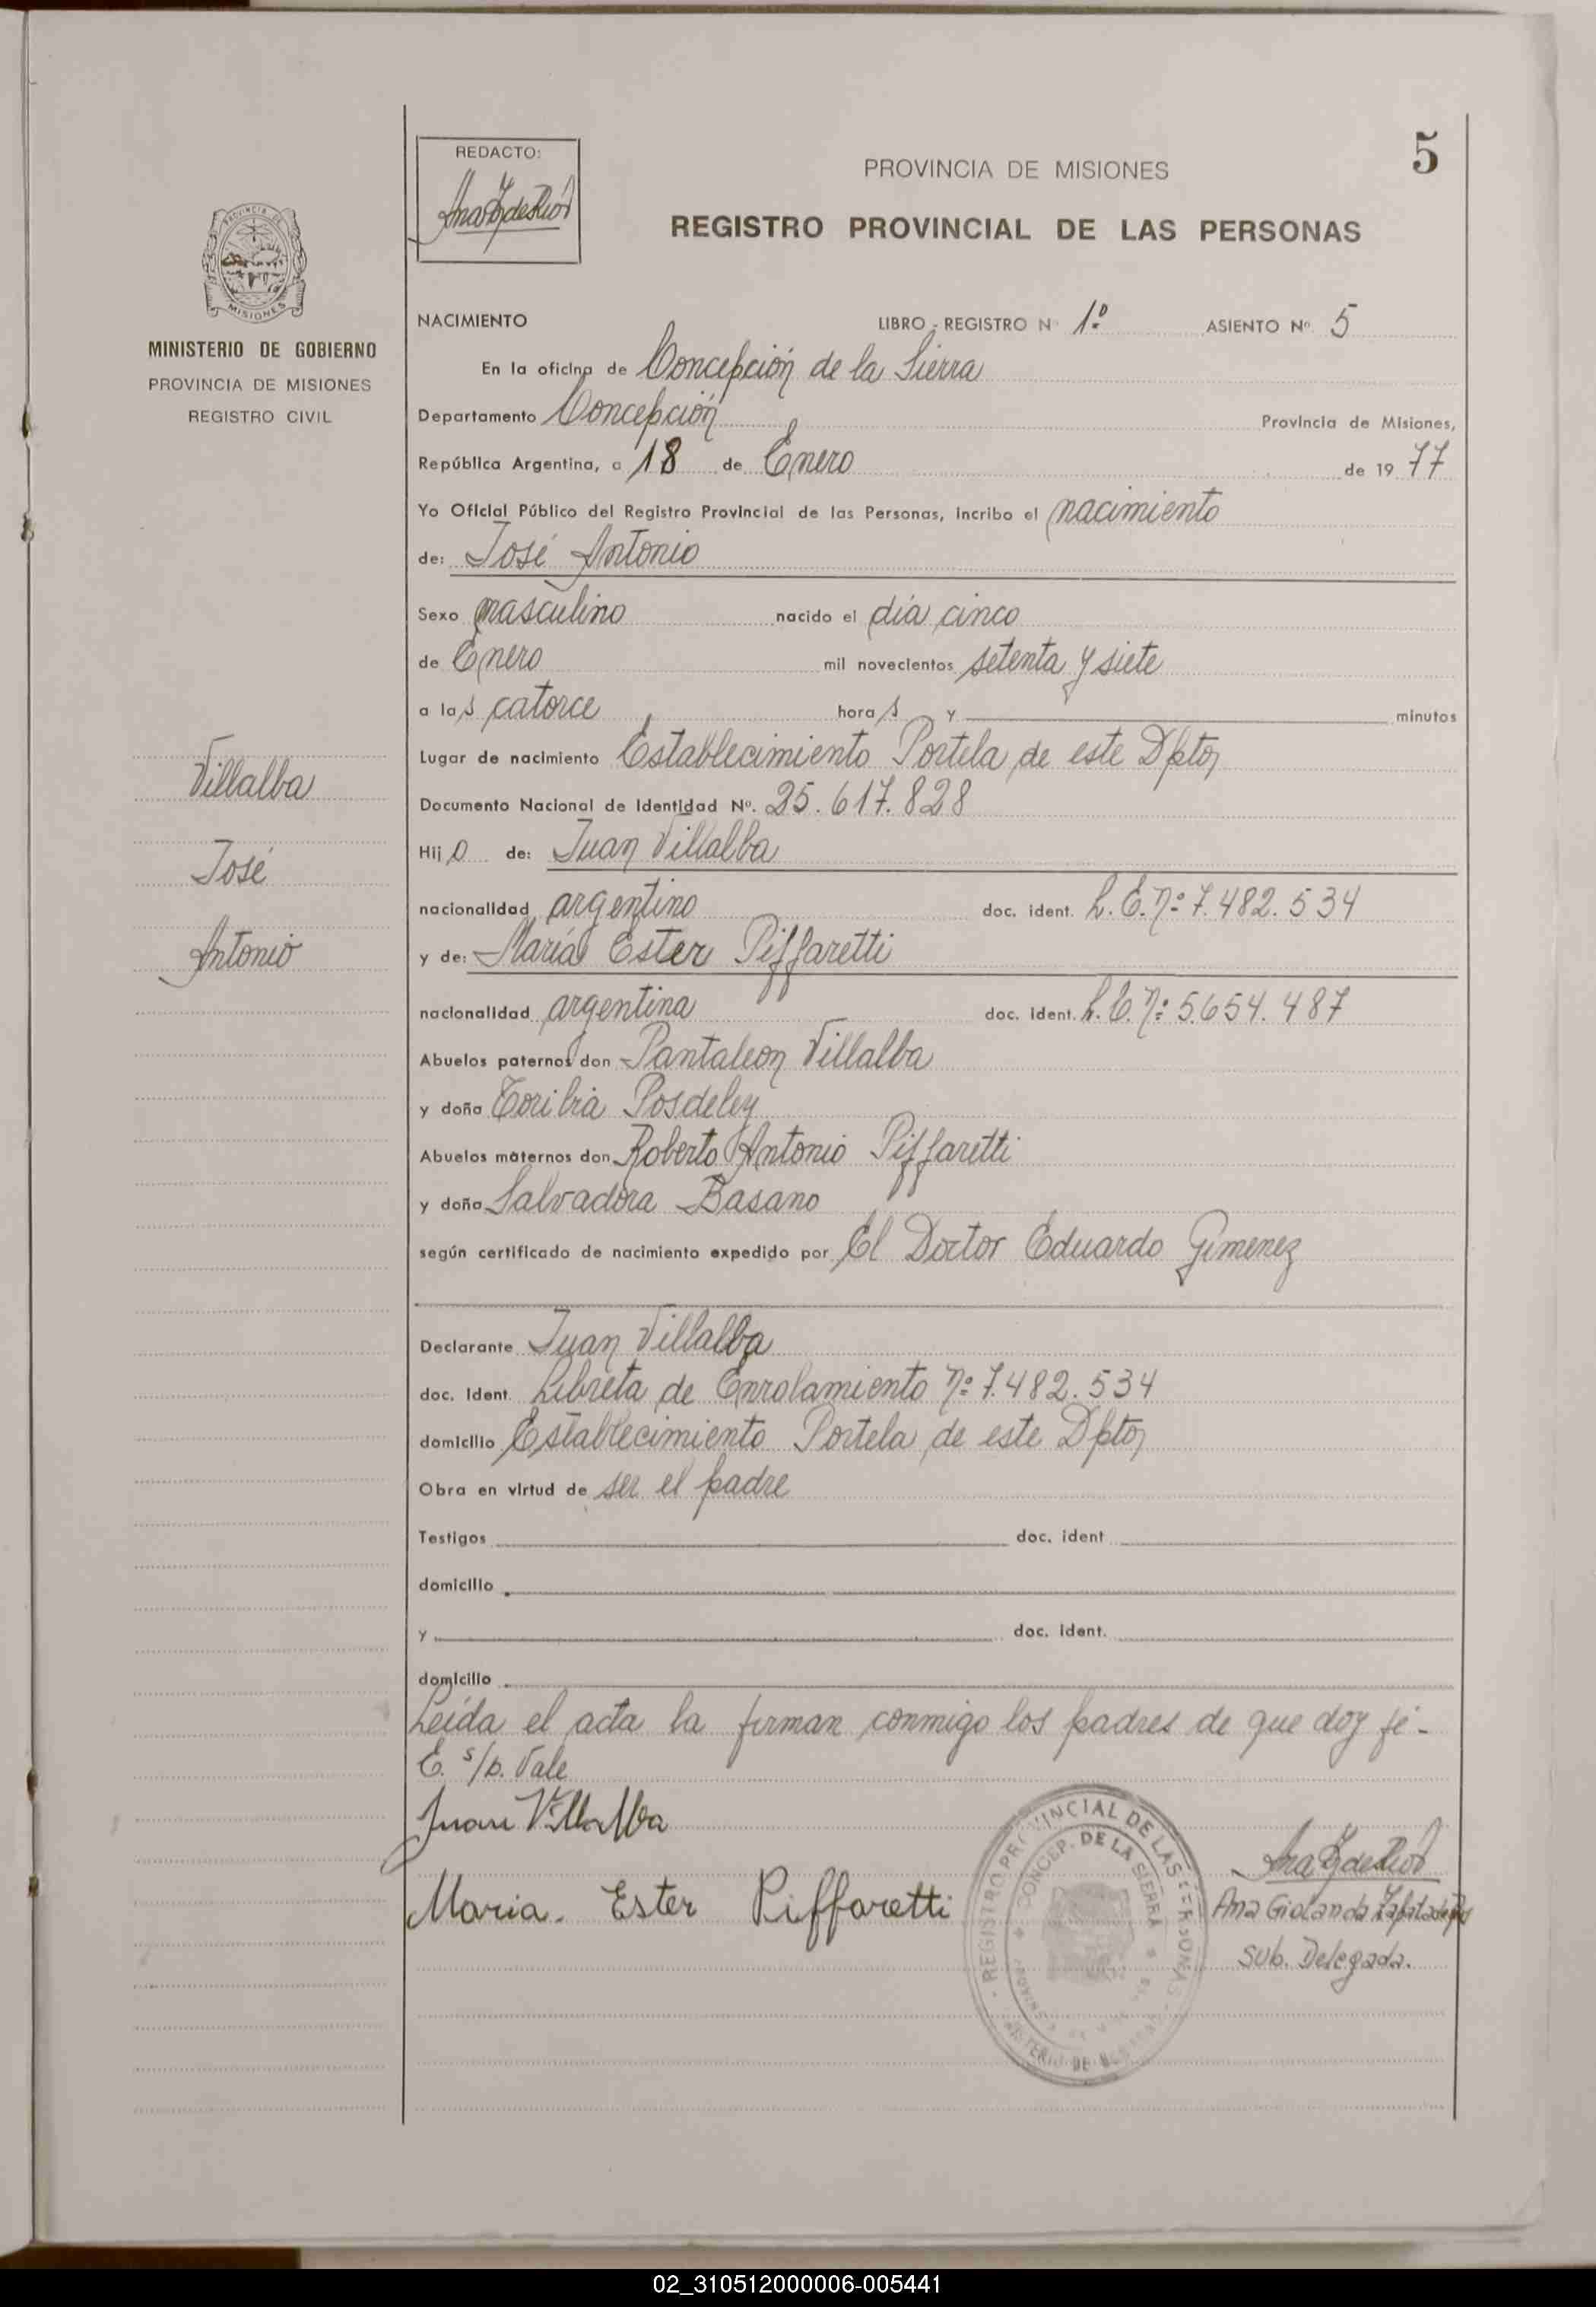 5
REDACTO:
PROVINCIA DE MISIONES
REGISTRO PROVINCIAL DE LAS PERSONAS
PROVINCIA DE
MISIONES
MINISTERIO DE GOBIERNO
PROVINCIA DE MISIONES
REGISTRO CIVIL
Villalba
José
Antonio
NACIMIENTO LIBRO - REGISTRO Nº 1º ASIENTO Nº 5
En la oficina de Concepción de la Sierra
Departamento Concepción Provincia de Misiones,
República Argentina, a 18 de Enero de 19 77
Yo Oficial Público del Registro Provincial de las Personas, incribo el nacimiento
de: José Antonio
Sexo masculino nacido el día cinco
de Enero mil novecientos setenta y siete
a las catorce horas y minutos
Lugar de nacimiento Establecimiento Portela de este Dpto,
Documento Nacional de Identidad Nº. 25.617.828
Hijo de: Juan Villalba
nacionalidad argentino doc. ident. L.E.nº 7.482.534
y de: María Ester Piffaretti
nacionalidad argentina doc. ident. L.C.nº 5.654.487
Abuelos paternos don Pantaleon Villalba
y doña Toribia Posdeley
Abuelos maternos don Roberto Antonio Piffaretti
y doña Salvadora Basano
según certificado de nacimiento expedido por El Doctor Eduardo Gimenez
Declarante Juan Villalba
doc. ident. Libreta de Enrolamiento nº 7.482.534
domicilio Establecimiento Portela de este Dpto,
Obra en virtud de ser el padre
Testigos doc. ident
domicilio
y doc. ident.
domicilio
Leída el acta la firman conmigo los padres de que doy fé-
E. s/p. Vale
Juan Villalba
Maria. Ester Piffaretti
REGISTRO PROVINCIAL DE LAS PERSONAS
CONCEP. DE LA SIERRA
Ana Giolanda
Sub. Delegada.
02_310512000006-005441